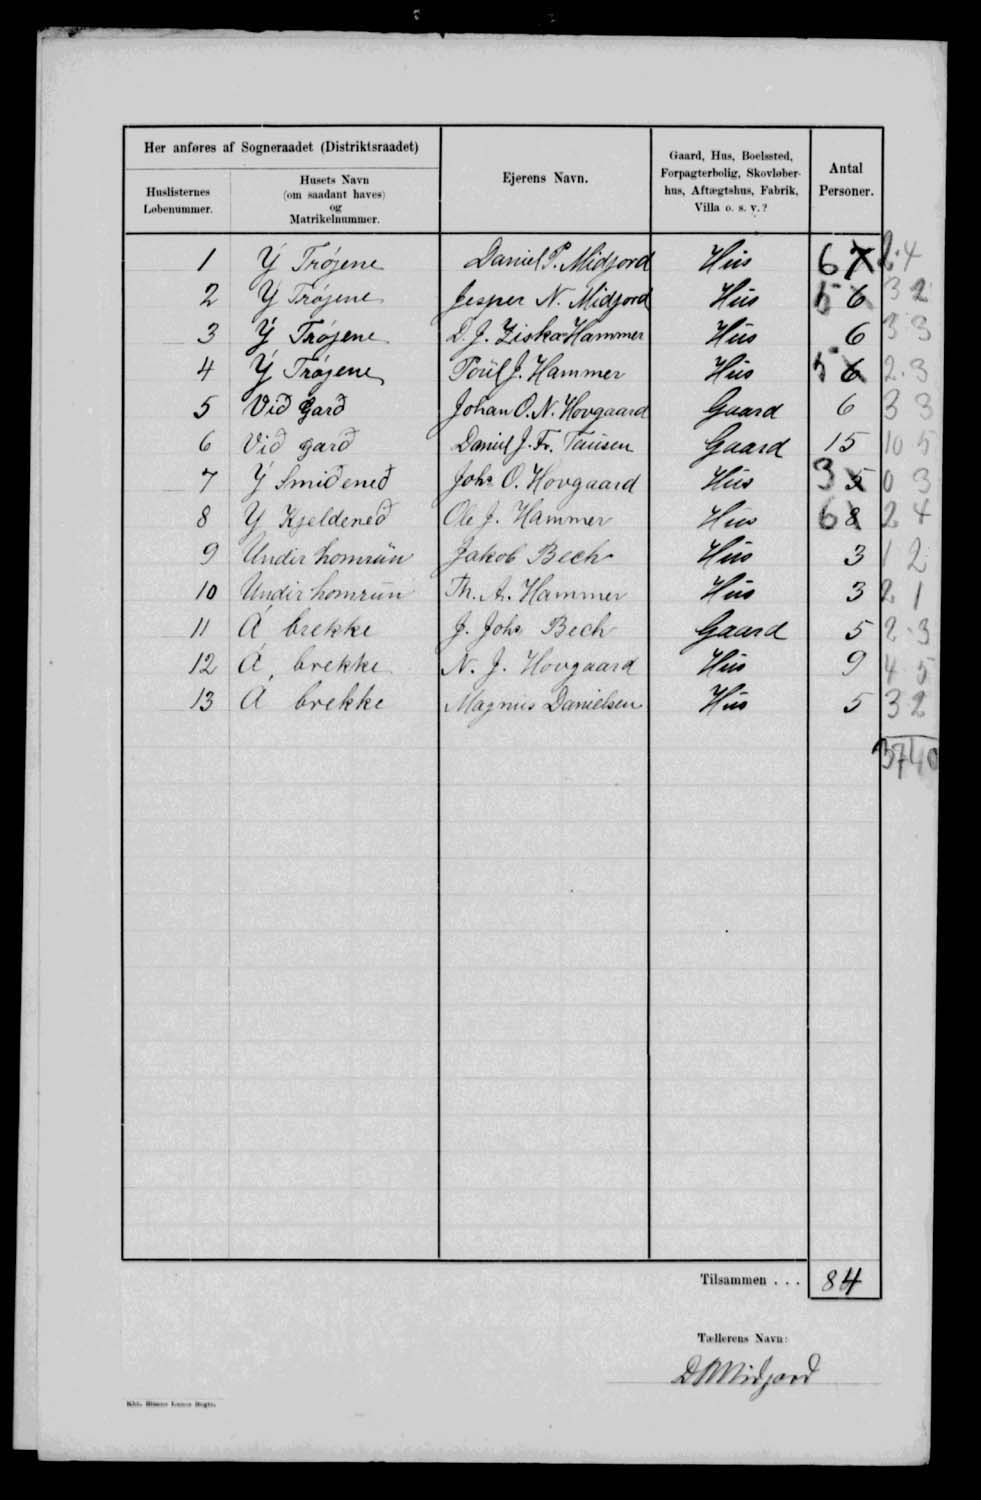 Her anføres af Sogneraadet (Distriktsraadet)
Huslisternes Løbenummer.
Husets Navn (om saadant haves) og Matrikelnummer.
Ejerens Navn.
Gaard, Hus, Boelssted, Forpagterbolig, Skovløberhus, Aftægtshus, Fabrik, Villa o. s. v.?
Antal Personer.
1 Y Trøjene Daniel P. Midjord Hus 6 7 2.4
2 Y Trøjene Jesper N. Midjord Hus 5 6 3 2
3 Y Trøjene D. J. Ziska Hammer Hus 6 3 3
4 Y Trøjene Poül J. Hammer Hus 5 6 2.3
5 Við Garð Johan O. N. Hovgaard Gaard 6 3 3
6 Við garð Daniel J. Fr. Tausen Gaard 15 10 5
7 Y Smiðeneð Johs O. Hovgaard Hus 3 5 0 3
8 Y Kjeldeneð Ole J. Hammer Hus 6 8 2 4
9 Undir homrün Jakob Bech Hus 3 1 2
10 Undir homrün Th. A. Hammer Hus 3 2 1
11 Á brekke J. Johs Bech Gaard 5 2.3
12 Á brekke N. J. Hovgaard Hus 9 4 5
13 Á brekke Magnus Danielsen Hus 5 3 2
37 40
Tilsammen . . . 84
Tællerens Navn:
D P Midjord